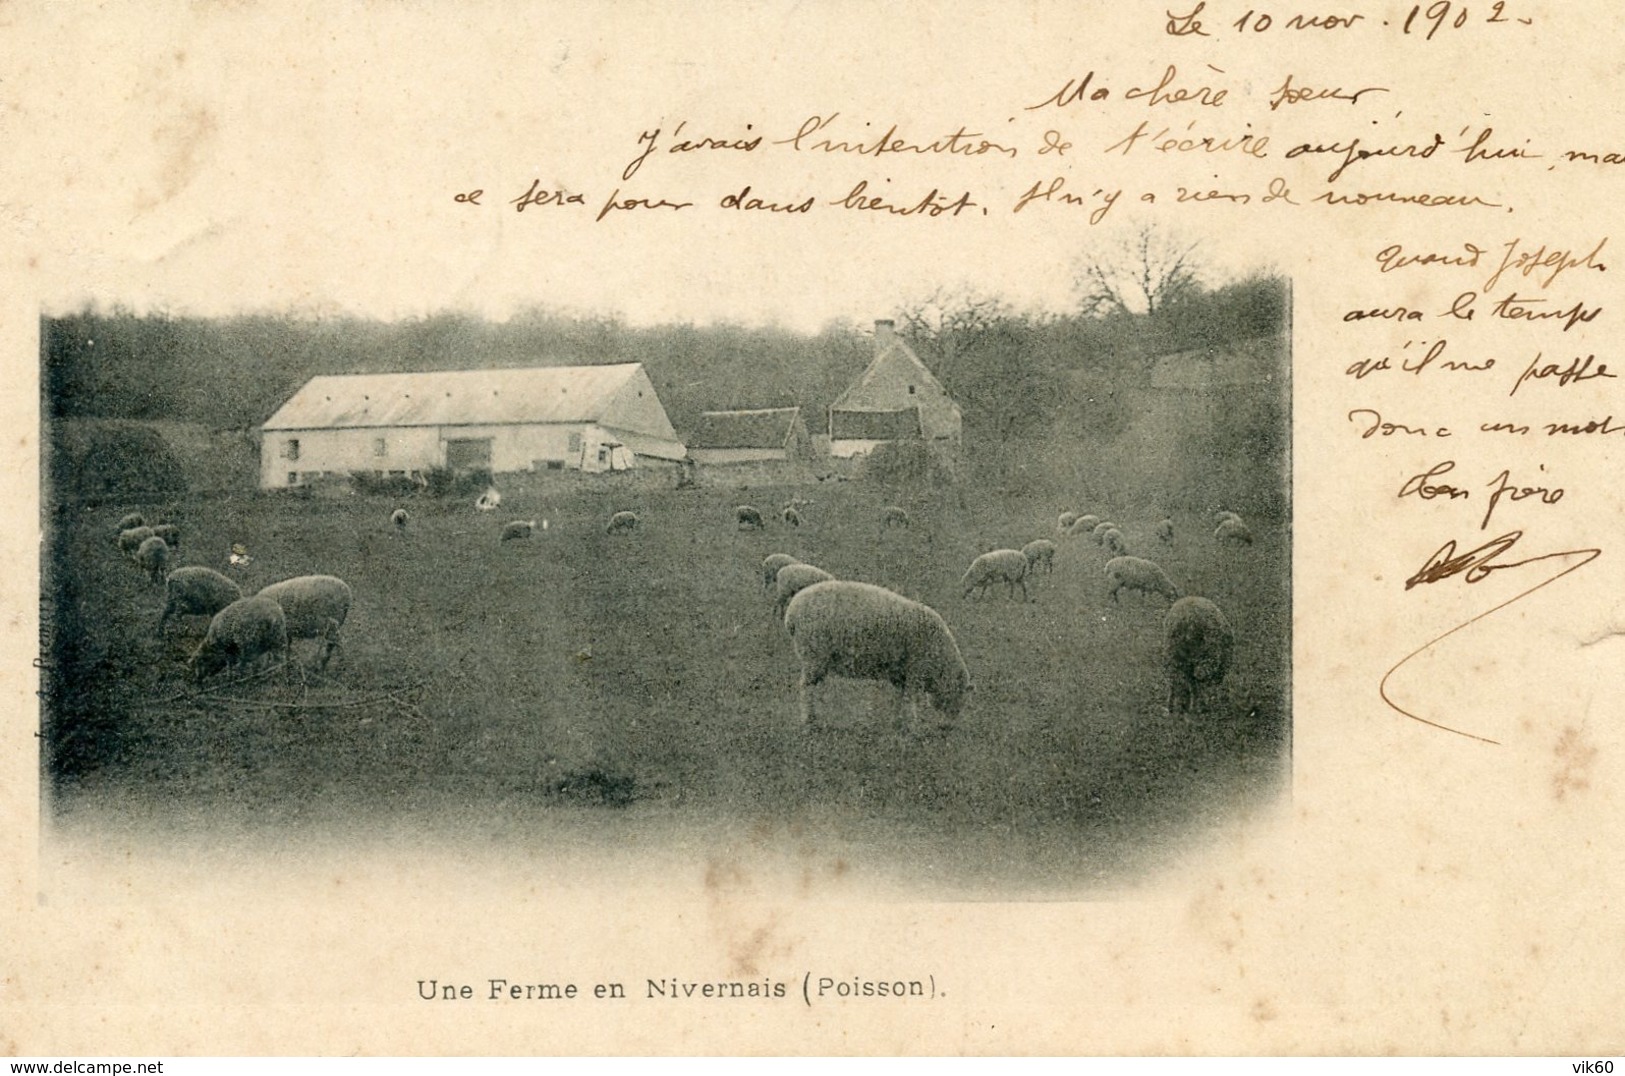 Le 10 nov. 1902.
Ma chère sœur,
J'avais l'intention de t'écrire aujourd'hui, ma
ce sera pour dans bientôt. Il n'y a rien de nouveau.
Quand Joseph
aura le temps
qu'il me passe
donc un mot.
Ton frère
Une Ferme en Nivernais (Poisson).
www.delcampe.net
vik60